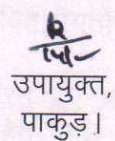 उपायुक्त,
पाकुड़।